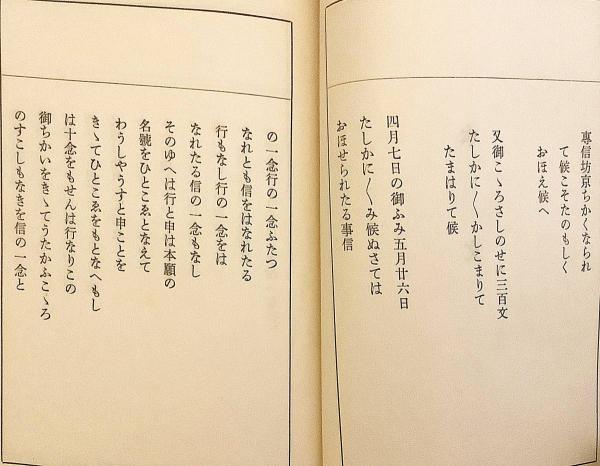 專信坊京ちかくなられ
て候こそたのもしく
おほえ候へ
又御こゝろさしのせに三百文
たしかに〳〵かしこまりて
たまはりて候
四月七日の御ふみ五月廿六日
たしかに〳〵み候ぬさては
おほせられたる事信
の一念行の一念ふたつ
なれとも信をはなれたる
行もなし行の一念をは
なれたる信の一念もなし
そのゆへは行と申は本願の
名號をひとこゑとなえて
わうしやうすと申ことを
きゝてひとこゑをもとなへもし
は十念をもせんは行なりこの
御ちかいをきゝてうたかふこゝろ
のすこしもなきを信の一念と